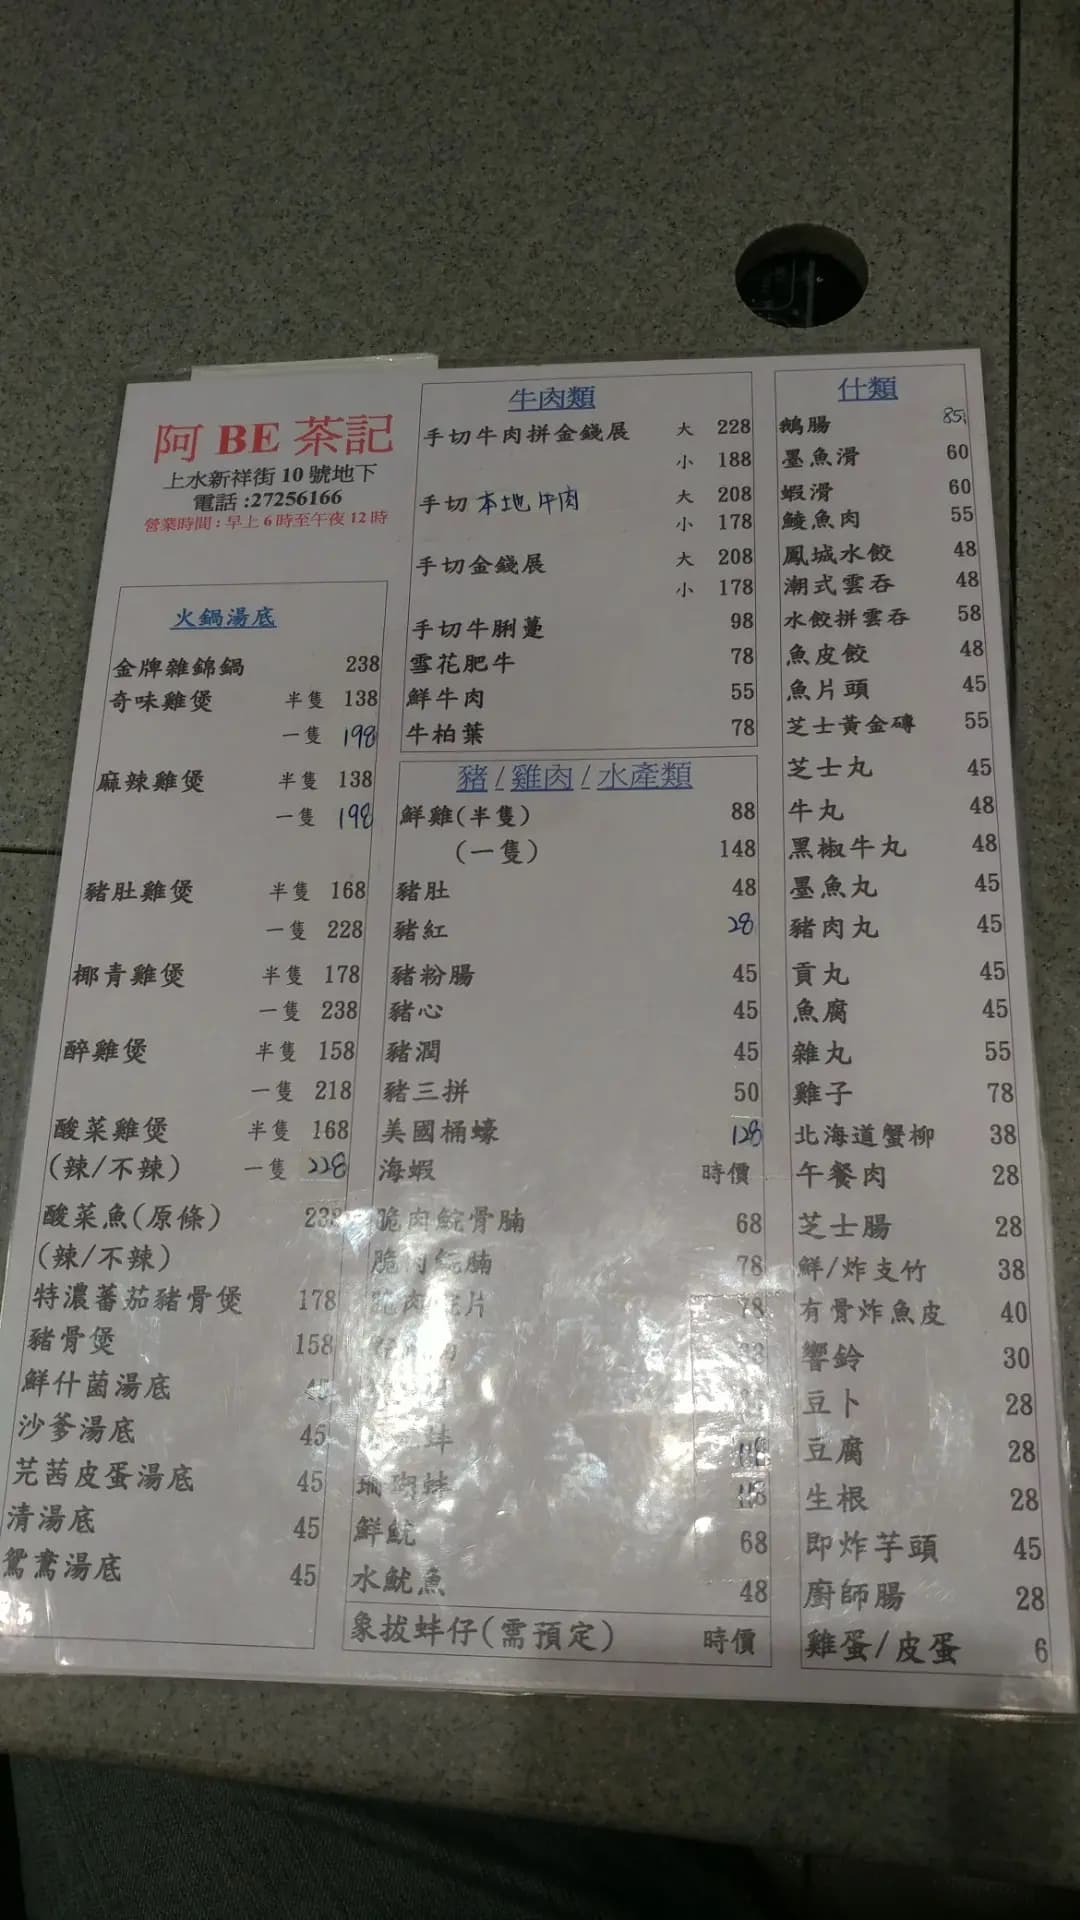 阿 BE 茶記
上水新祥街 10 號地下
電話 :27256166
營業時間 : 早上 6 時至午夜 12 時
火鍋湯底
金牌雜錦鍋 238
奇味雞煲 半隻 138
一隻 198
麻辣雞煲 半隻 138
一隻 198
豬肚雞煲 半隻 168
一隻 228
椰青雞煲 半隻 178
一隻 238
醉雞煲 半隻 158
一隻 218
酸菜雞煲 半隻 168
(辣/不辣) 一隻 228
酸菜魚(原條) 238
(辣/不辣)
特濃蕃茄豬骨煲 178
豬骨煲 158
鮮什菌湯底 45
沙爹湯底 45
芫茜皮蛋湯底 45
清湯底 45
鴛鴦湯底 45
牛肉類
手切牛肉拼金錢展 大 228
小 188
手切 本地牛肉 大 208
小 178
手切金錢展 大 208
小 178
手切牛脷躉 98
雪花肥牛 78
鮮牛肉 55
牛柏葉 78
豬/雞肉/水產類
鮮雞(半隻) 88
(一隻) 148
豬肚 48
豬紅 28
豬粉腸 45
豬心 45
豬潤 45
豬三拼 50
美國桶蠔 128
海蝦 時價
脆肉鯇骨腩 68
脆肉鯇腩 78
肉鯇片 78
蚌
珊瑚蚌
鮮魷 68
水魷魚 48
象拔蚌仔(需預定) 時價
什類
鵝腸 85
墨魚滑 60
蝦滑 60
鯪魚肉 55
鳳城水餃 48
潮式雲吞 48
水餃拼雲吞 58
魚皮餃 48
魚片頭 45
芝士黃金磚 55
芝士丸 45
牛丸 48
黑椒牛丸 48
墨魚丸 45
豬肉丸 45
貢丸 45
魚腐 45
雜丸 55
雞子 78
北海道蟹柳 38
午餐肉 28
芝士腸 28
鮮/炸支竹 38
有骨炸魚皮 40
響鈴 30
豆卜 28
豆腐 28
生根 28
即炸芋頭 45
廚師腸 28
雞蛋/皮蛋 6